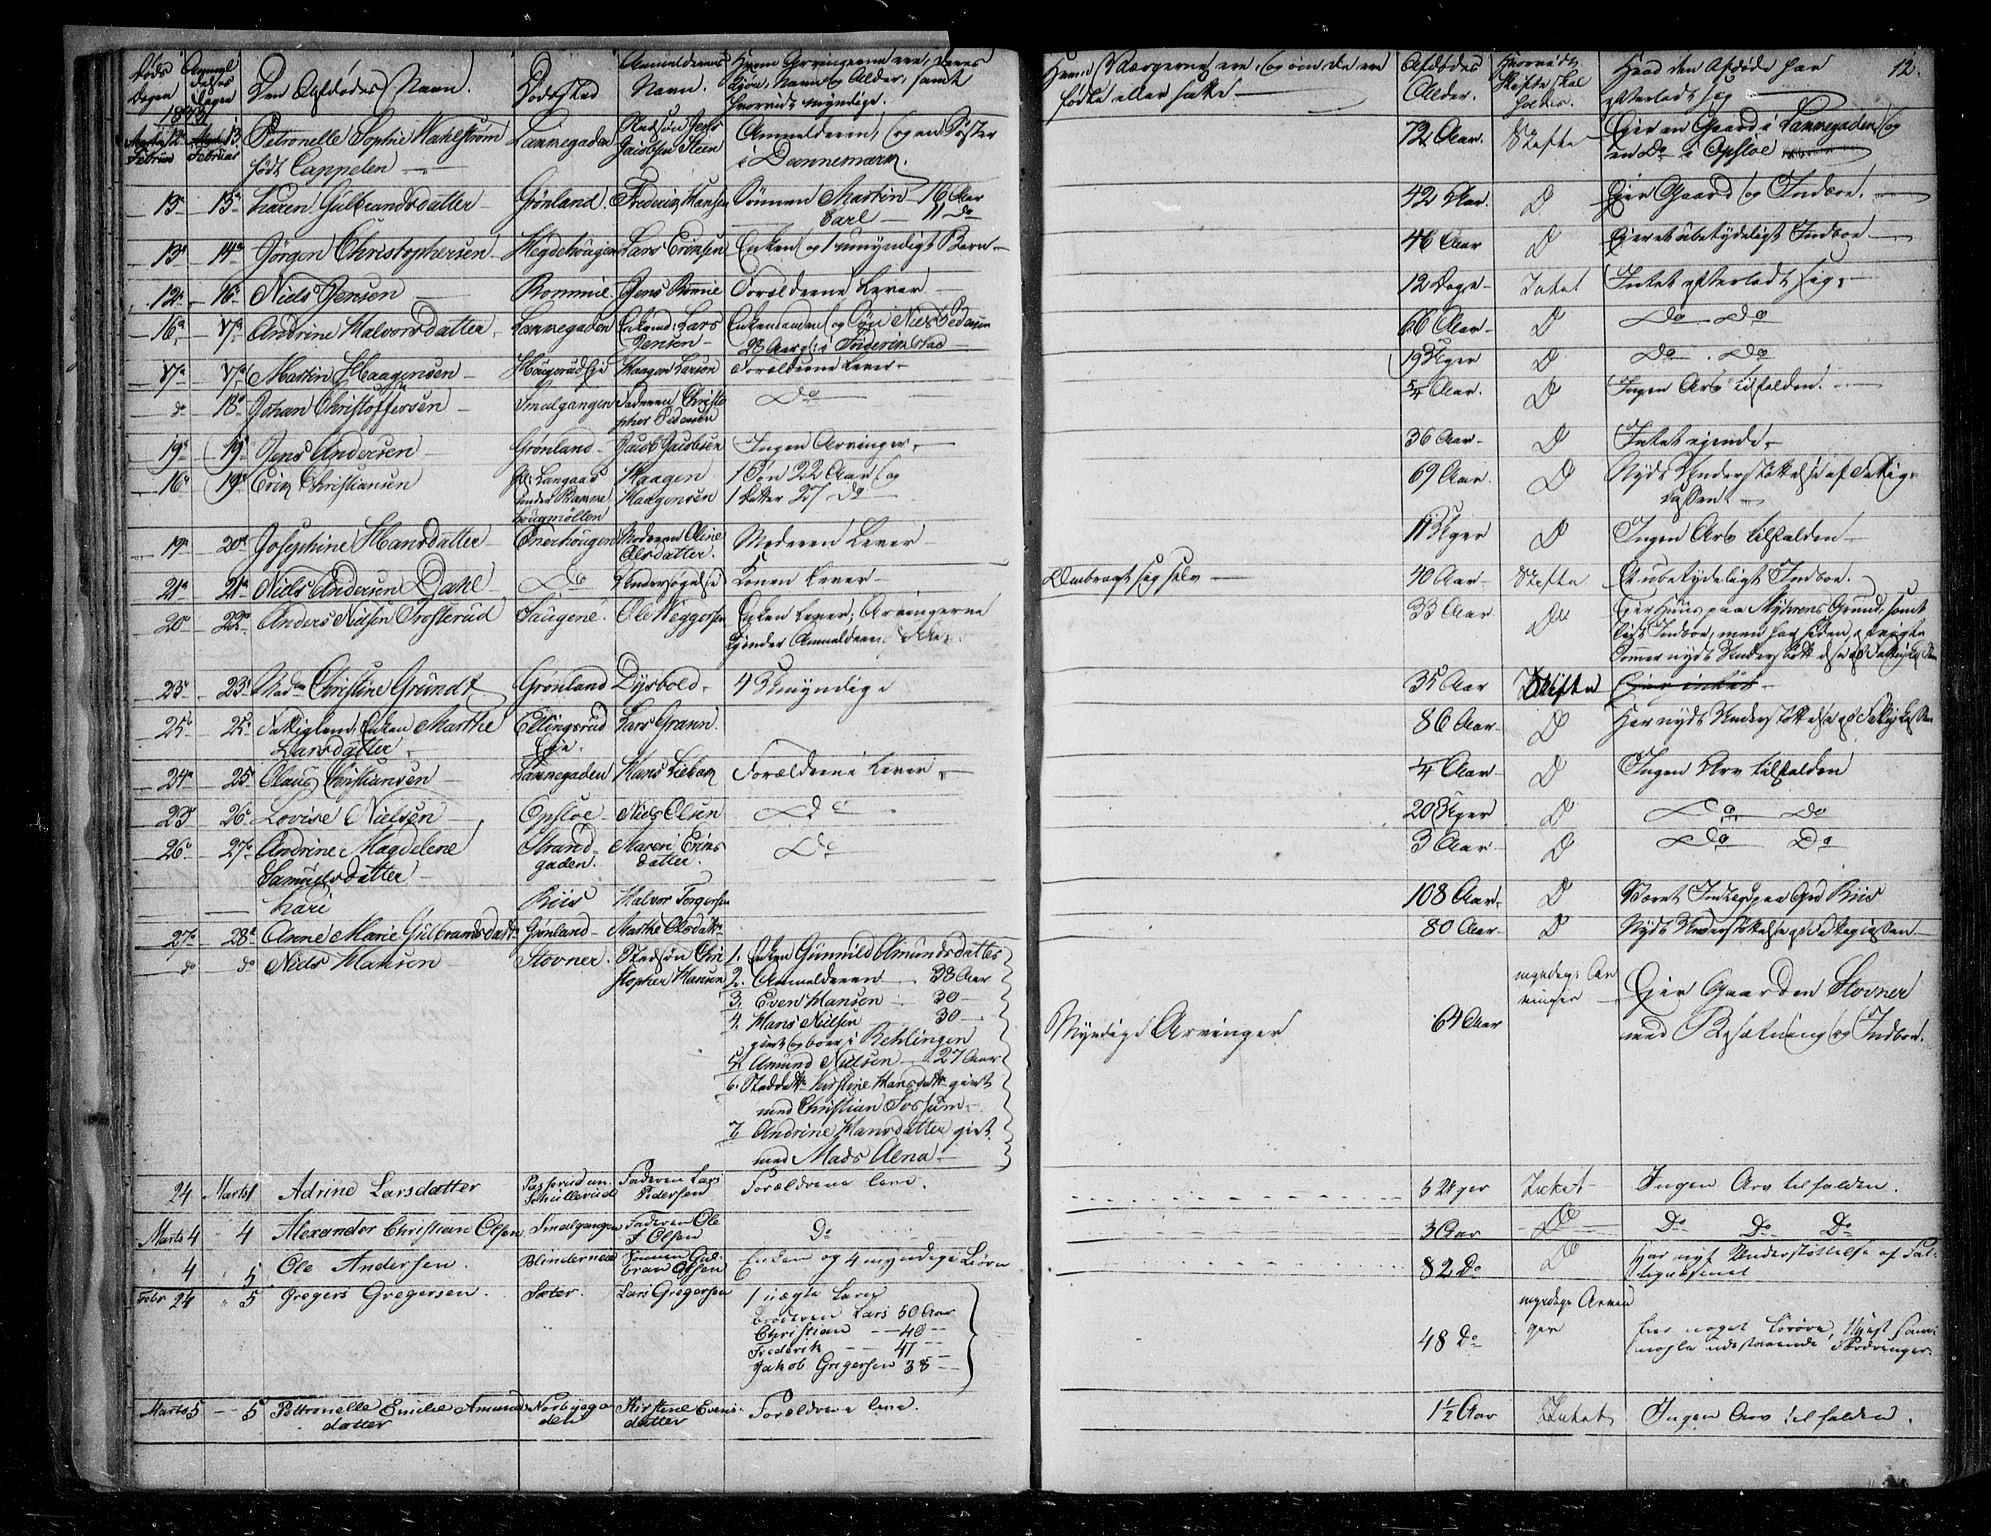 Døds Dagen
Anmeldelses Dagen
Den Afdødes Navn.
Dødssted
Anmelderens Navn.
Hvem Arvingerne ere, deres Kjøn, Navn og Alder, samt hvorvidt myndige.
Hvem Værgerne ere, og om de ere fødte eller satte
Afdødes Alder.
Hvorvidt Skifte skal holdes.
Hvad den Afdøde har efterladt sig
12.
12 Februar 13 Februar Petronelle Sophie Wahlstrøm født Cappelen Lannegaden Jens Jacobsen Steen Anmelderen, og en Søster i Dannemark. 72 Aar Skifte Ejer en Gaard i Lannegaden og en Do i Opsloe
13 15 Karen Gulbrandsdatter Grønland Frederik Hansen Sønnen Martin 16 Aar Carl 11 Do 42 Aar Do Ejer Gaard og Indboe.
13 14 Jørgen Christophersen Hegdehougen Lars Eriksen Enken og 1 umyndigt Barn 46 Aar Do Ejer et ubetydeligt Indboe
12 16 Niels Jensen Rommie Jens Rommie Forældrene Lever 12 Dage Intet Intet efterladt sig
16 17 Andrine Halvorsdatter Lannegaden Enkemd: Lars Jensen Enkemanden og Søn Niels Pedersen 66 Aar Do Do Do
17 17 Martin Haagensen Hougerud Eje Haagen Larsen Forældrene Lever 19 Uger Do Do Do
do 18 Johan Christoffersen Smalgangen Faderen Christopher Pedersen Do 5/4 Aar Do Ingen Arv tilfalden.
19 19 Jens Andersen Grønland Jacob Jacobsen Ingen Arvinger. 36 Aar Do Intet ejende
16 19 Erik Christiansen Langaas under Hammerhougmøllen Haagen Haagensen 1 Søn 22 Aar og 1 Datter 27 Do 69 Aar Do Nydt Understøttelse af Fattigkassen
19 20 Josephine Hansdatter Enerhougen Moderen Oline Olsdatter. Moderen Lever 11 Uger Do Ingen Arv tilfalden
21 21 Niels Andersen Dahl Do Undersøgelse Konen Lever Ombragt sig selv 40 Aar Skifte Et ubetydeligt Indboe.
20 22 Anders Nielsen Trosterud Saugene. Ole Weggersen Enken Lever; Arvingerne kjender Anmelderen ikke. 33 Aar Do Ejer Huus paa Myhrens Grund, samt lidt Indboe, men har siden afvigte Sommer nydt Understøttelse af Fattigkassen
23 23 Mad. Christine Grundt Grønland Dysbold 4 Umyndige 35 Aar Skifte Ejer intet
25 25 Fattiglem Enken Marthe Larsdatter Ellingsrud Eje. Lars Grann. 86 Aar Do Har nydt Understøttelse af Fattigkassen
24 25 Olaus Christiansen Lannegaden Hans Liebak Forældrene Lever 1/4 Aar Do Ingen Arv tilfalden
23 26 Lovise Nielsen Opsloe Niels Olsen Do 20 Uger Do Do Do
26 27 Andrine Magdelene Samuelsdatter Strandgaden. Maren Eriksdatter. Do 3 Aar Do Do Do
Kari Riis Halvor Torgersen 108 Aar Do Været Inderst paa Grd Riis
27 28 Anne Marie Gulbrandsdatt. Grønland Marthe Olsdattr. 80 Aar Do Nydt Understøttelse af Fattigkassen
do do Niels Hansen Stovner. Stedsøn Christopher Hansen
1. Enken Gunnild Amundsdatter
2. Anmelderen 38 Aar
3. Even Hansen 30
4. Hans Nielsen 30
gift og boer i Rehlingen
5. Amund Nielsen 27 Aar
6. Steddattr. Kirstine Hansdattr. givt
med Christian Fossum
7. Andrine Hansdatter givt
med Mads Alna
Myndige Arvinger 64 Aar myndige Arvinger Ejer Gaarden Stovner med Besætning og Indboe.
24 Marts 1 Adrine Larsdatter Schullerud Faderen Lars Pedersen Forældrene leve. 5 Uger Intet Ingen Arv tilfalden.
Marts 4 4 Alexander Christian Olsen Smalgangen Faderen Ole F Olsen Do 3 Aar Do Do Do Do
4 5 Ole Andersen. Blinderneie Sønnen Gulbran Olsen Enken og 4 myndige Børn 82 Do Do Har nyt Understøttelse af
Febr 24 5 Gregers Gregersen. Sæter. Lars Gregersen
1 uægte Barn
Broderen Lars 50 Aar
Christian 40
Frederik 41
Jakob Gregersen 38
48 Do myndige Arvinger
Marts 5 5 Pettronelle Emilie Amundsdatter Norbygaden Kirstine Evensdatter Forældrene leve. 1 1/2 Aar Intet Ingen Arv tilfalden.